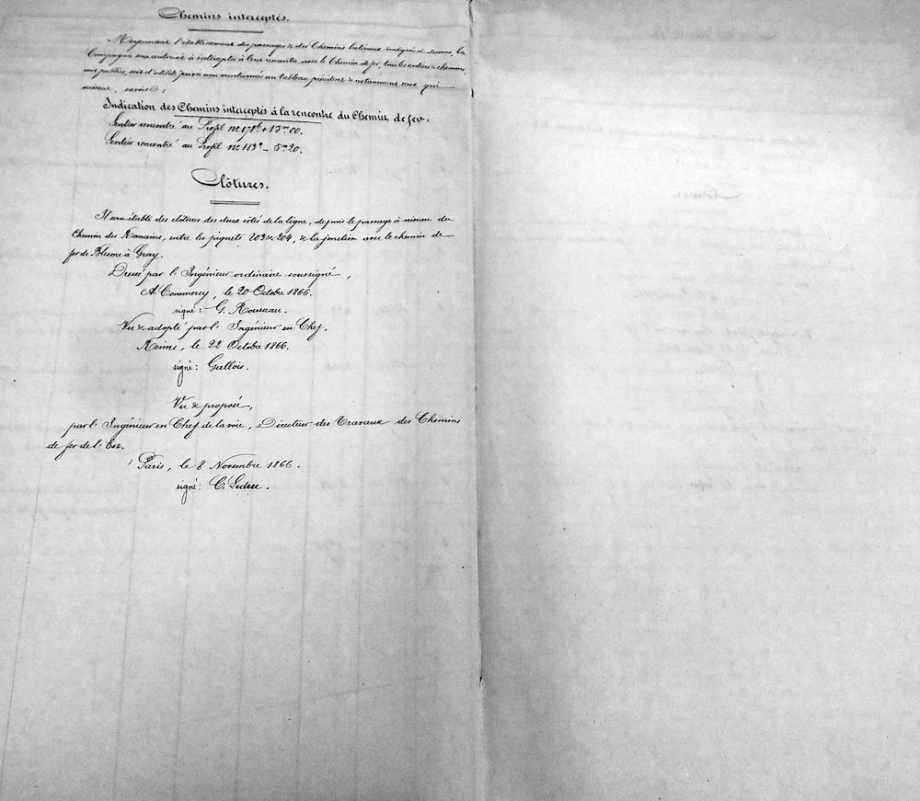 Chemins interceptés.
Moyennant l'établissement des passages & des Chemins latéraux indiqués ci-dessus, la
Compagnie sera autorisée à intercepter à leur rencontre avec le Chemin de fer, tous les sentiers & chemins,
soit publics, soit d'utilité privée non mentionnés au tableau précédent & notamment ceux qui
suivent, savoir :
Indication des Chemins interceptés à la rencontre du Chemin de fer.
Sentier rencontré au Profil
Sentier rencontré au Profil
Clôtures.
Il sera établi des clôtures des deux côtés de la ligne, depuis le passage à niveau du
Chemin des Romains, entre les piquets 203 & 204, & la jonction avec le chemin de
fer de Blesme à Gray.
Dressé par l'Ingénieur ordinaire soussigné,
A Commercy, le 20 Octobre 1866.
signé : G. Rousseau.
Vu & adopté par l'Ingénieur en Chef,
Reims, le 22 Octobre 1866.
signé : Gallois.
Vu & proposé,
par l'Ingénieur en Chef de la voie, Directeur des Travaux des Chemins
de fer de l'Est.
Paris, le 8 Novembre 1866.
signé : C.